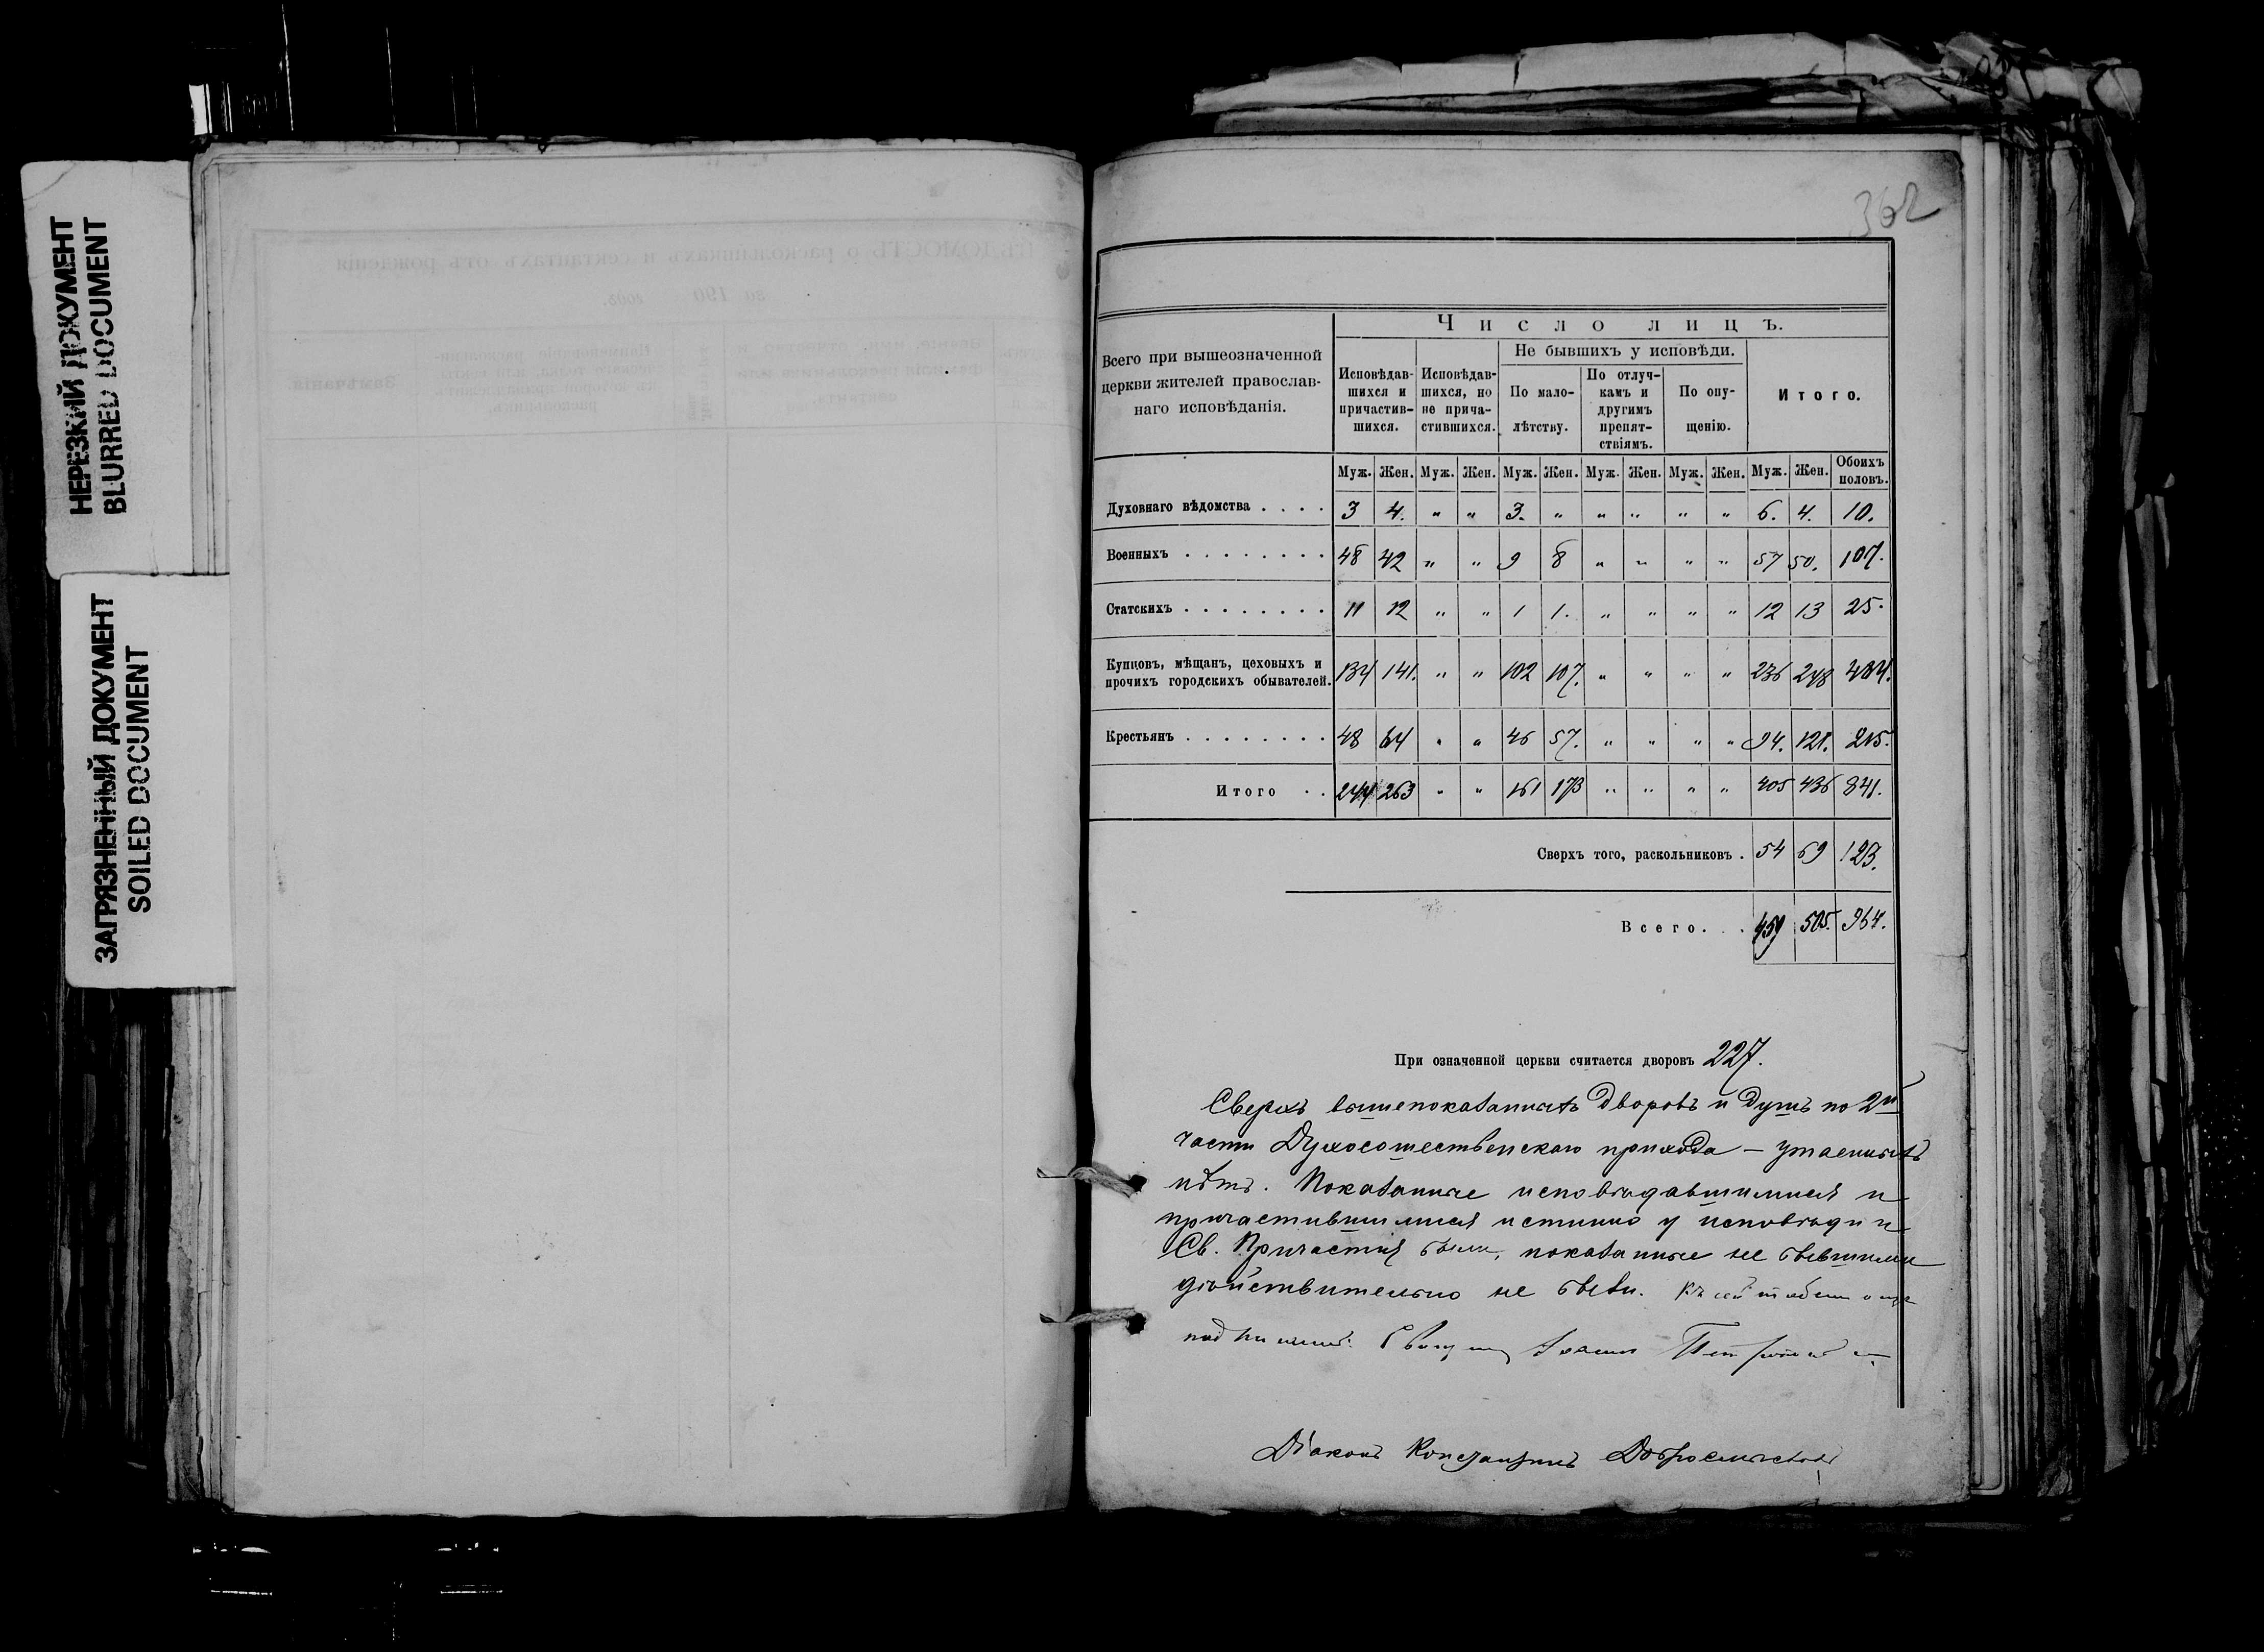 НЕРЕЗКИЙ ДОКУМЕНТ
BLURRED DOCUMENT
ЗАГРЯЗНЕННЫЙ ДОКУМЕНТ
SOILED DOCUMENT
ВѢДОМОСТЬ о раскольникахъ и сектантахъ отъ рожденія
за 190 годъ.
362
Всего при вышеозначенной
церкви жителей православ-
наго исповѣданія.
Число лицъ.
Исповѣдав-
шихся и
причастив-
шихся.
Исповѣдав-
шихся, но
не прича-
стившихся.
Не бывшихъ у исповѣди.
По мало-
лѣтству.
По отлуч-
камъ и
другимъ
препят-
ствіямъ.
По опу-
щенію.
Итого.
Муж. Жен. Муж. Жен. Муж. Жен. Муж. Жен. Муж. Жен. Муж. Жен. Обоихъ
половъ.
Духовнаго вѣдомства . . . . 3 4. " " 3. " " " " " 6. 4. 10.
Военныхъ . . . . . . . . 48 42 " " 9 8 " " " " 57 50. 107.
Статскихъ . . . . . . . . 11 12 " " 1 1. " " " " 12 13 25.
Купцовъ, мѣщанъ, цеховыхъ и
прочихъ городскихъ обывателей. 134 141. " " 102 107. " " " " 236 248 484.
Крестьянъ . . . . . . . . 48 64 " " 46 57. " " " " 94. 121. 215.
Итого . . 244 263 " " 161 173 " " " " 405 436 841.
Сверхъ того, раскольниковъ . 54 69 123.
Всего. . . 459 505. 964.
При означенной церкви считается дворовъ 227.
Сверхъ вышепоказанныхъ дворовъ и душъ по 2й
части Духосошественскаго прихода — утаенныхъ
нѣтъ. Показанные исповѣдавшимися и
причастившимися истинно у исповѣди и
Св. Причастія были, показанные не бывшими
дѣйствительно не были. Къ сей
Священникъ Іоаннъ
Діаконъ Константинъ Добросмысловъ